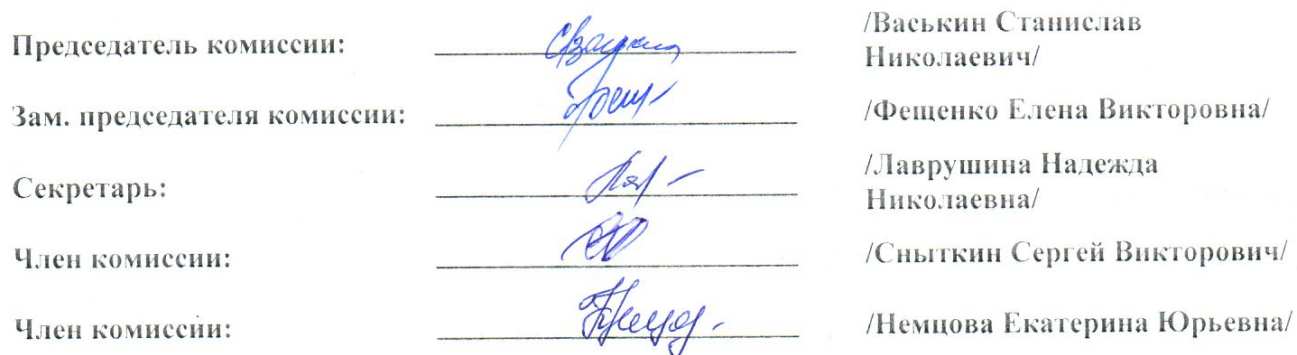 Председатель комиссии: /Васькин Станислав
Николаевич/
Зам. председателя комиссии: /Фещенко Елена Викторовна/
Секретарь: /Лаврушина Надежда
Николаевна/
Член комиссии: /Сныткин Сергей Викторович/
Член комиссии: /Немцова Екатерина Юрьевна/